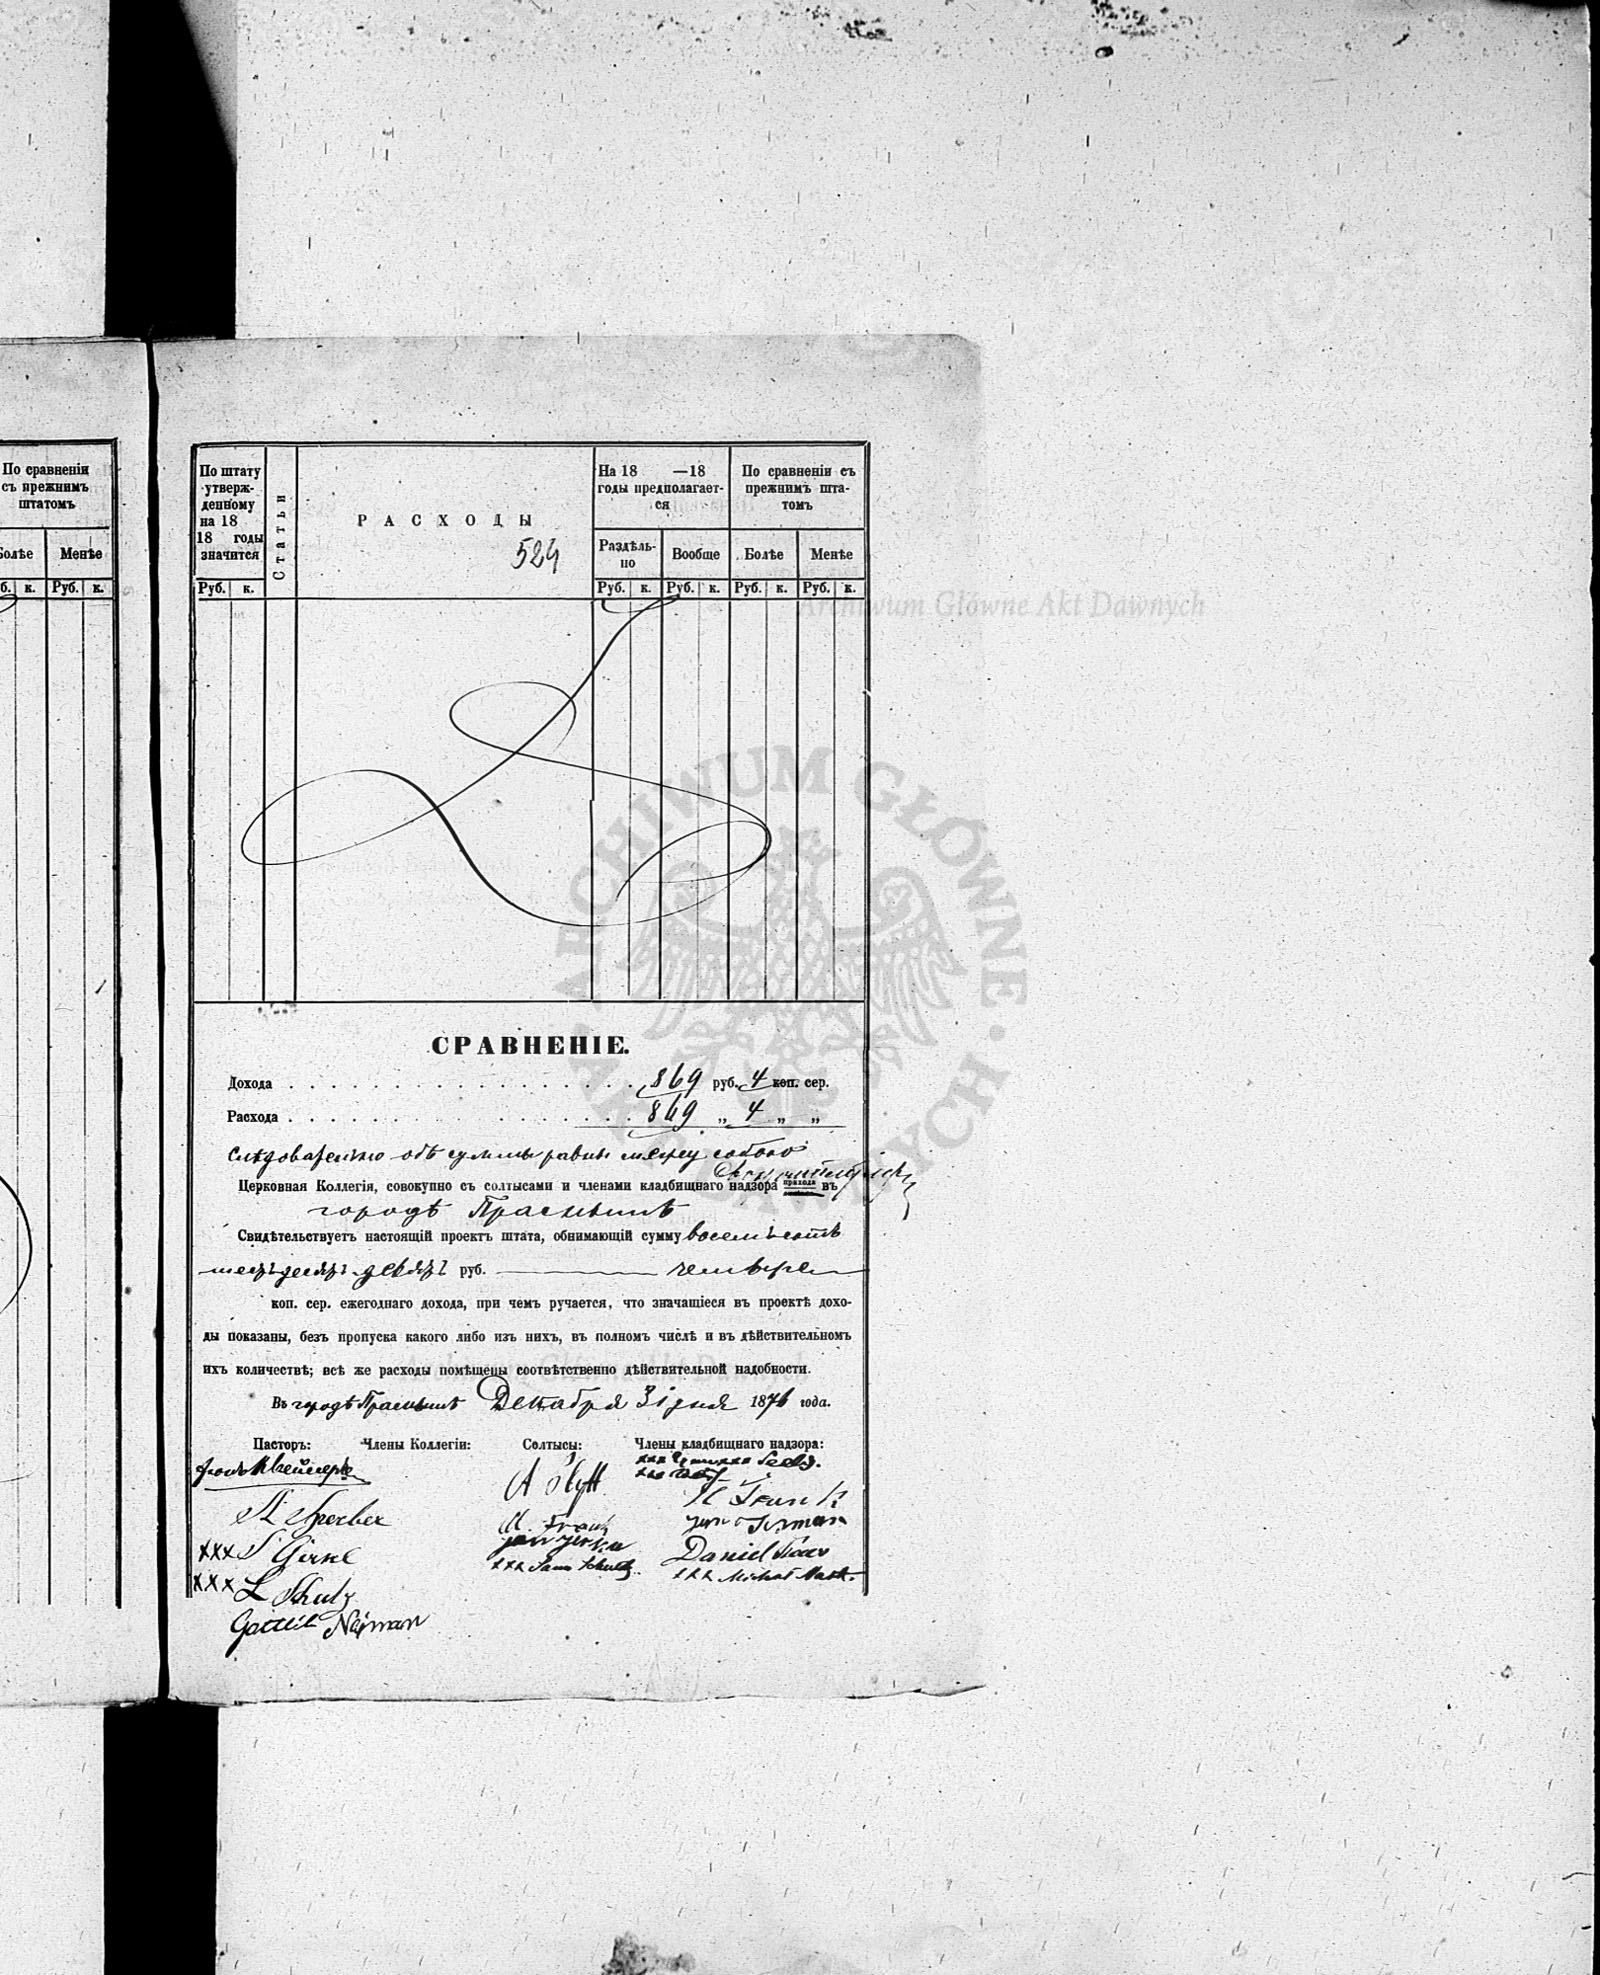 По сравненіи
съ прежнимъ
штатомъ
Болѣе Менѣе
б. к. Руб. к.
По штату
утверж-
денному
на 18
18 годы
значится
Руб. к.
Статьи
РАСХОДЫ
524
На 18 —18
годы предполагает-
ся
Раздѣль-
но
Вообще
Руб. к. Руб. к.
По сравненіи съ
прежнимъ шта-
томъ
Болѣе Менѣе
Руб. к. Руб. к.
Archiwum Główne Akt Dawnych
ARCHIWUM GŁÓWNE AKT DAWNYCH
СРАВНЕНІЕ.
Дохода . . . . . . . . . . 869 руб. 4 коп. сер.
Расхода . . . . . . . . . . 869 „ 4 „ „
Слѣдовательно обѣ суммы равны между собою
Церковная Коллегія, совокупно съ солтысами и членами кладбищнаго надзора прихода въ
городѣ Праснышѣ
Свидѣтельствуетъ настоящій проектъ штата, обнимающій сумму восемьсотъ
шестьдесятъ девять руб. четыре
коп. сер. ежегоднаго дохода, при чемъ ручается, что значащіеся въ проектѣ дохо-
ды показаны, безъ пропуска какого либо изъ нихъ, въ полномъ числѣ и въ дѣйствительномъ
ихъ количествѣ; всѣ же расходы помѣщены соотвѣтственно дѣйствительной надобности.
Archiwum Główne Akt Dawnych
Въ городѣ Праснышѣ Декабря 31 дня 1876 года.
Пасторъ: Члены Коллегіи: Солтысы: Члены кладбищнаго надзора:
xxx
A
H Frank
Sperber
M. Frank
Jan
xxx S Girke
Daniel
xxx
xxx Michał
xxx L Shulz
Gottlib Nejman